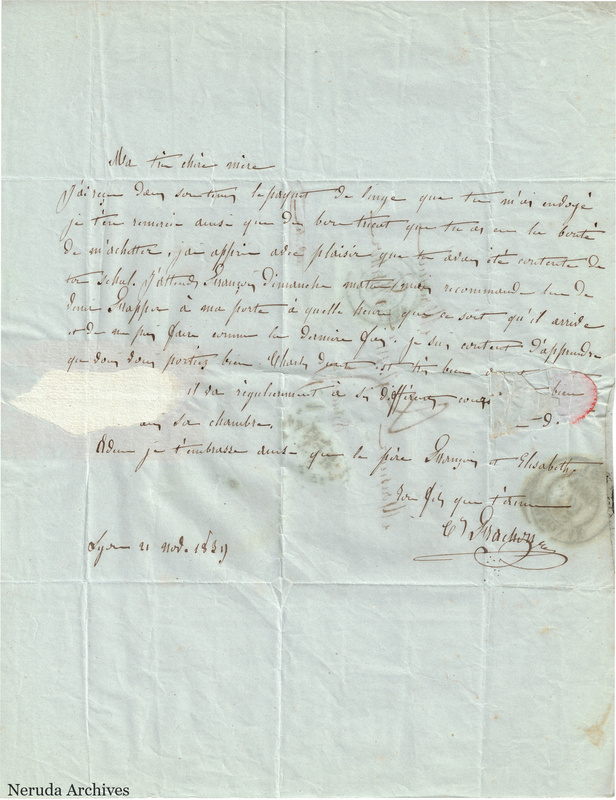 Ma très chère mère
J'ai reçu dans son temps le paquet de linge que tu m'as envoyé
je t'en remercie ainsi que du bon tricot que tu as eu la bonté
de m'achetter, j'ai appris avec plaisir que tu avais été contente de
ton schal. J'attends François dimanche matin, mais recommande lui de
venir frapper à ma porte à quelle heure que ce soit qu'il arrive
et de ne pas faire comme la dernière fois. je suis content d'apprendre
que vous vous portiez bien Charles est très bien
il va régulierment à ses différents cours bien
sa chambre.
Adieu je t'embrasse ainsi que le père François et Elisabeth
Ton fils que t'aime
Lyon 21 nov. 1839
Neruda Archives